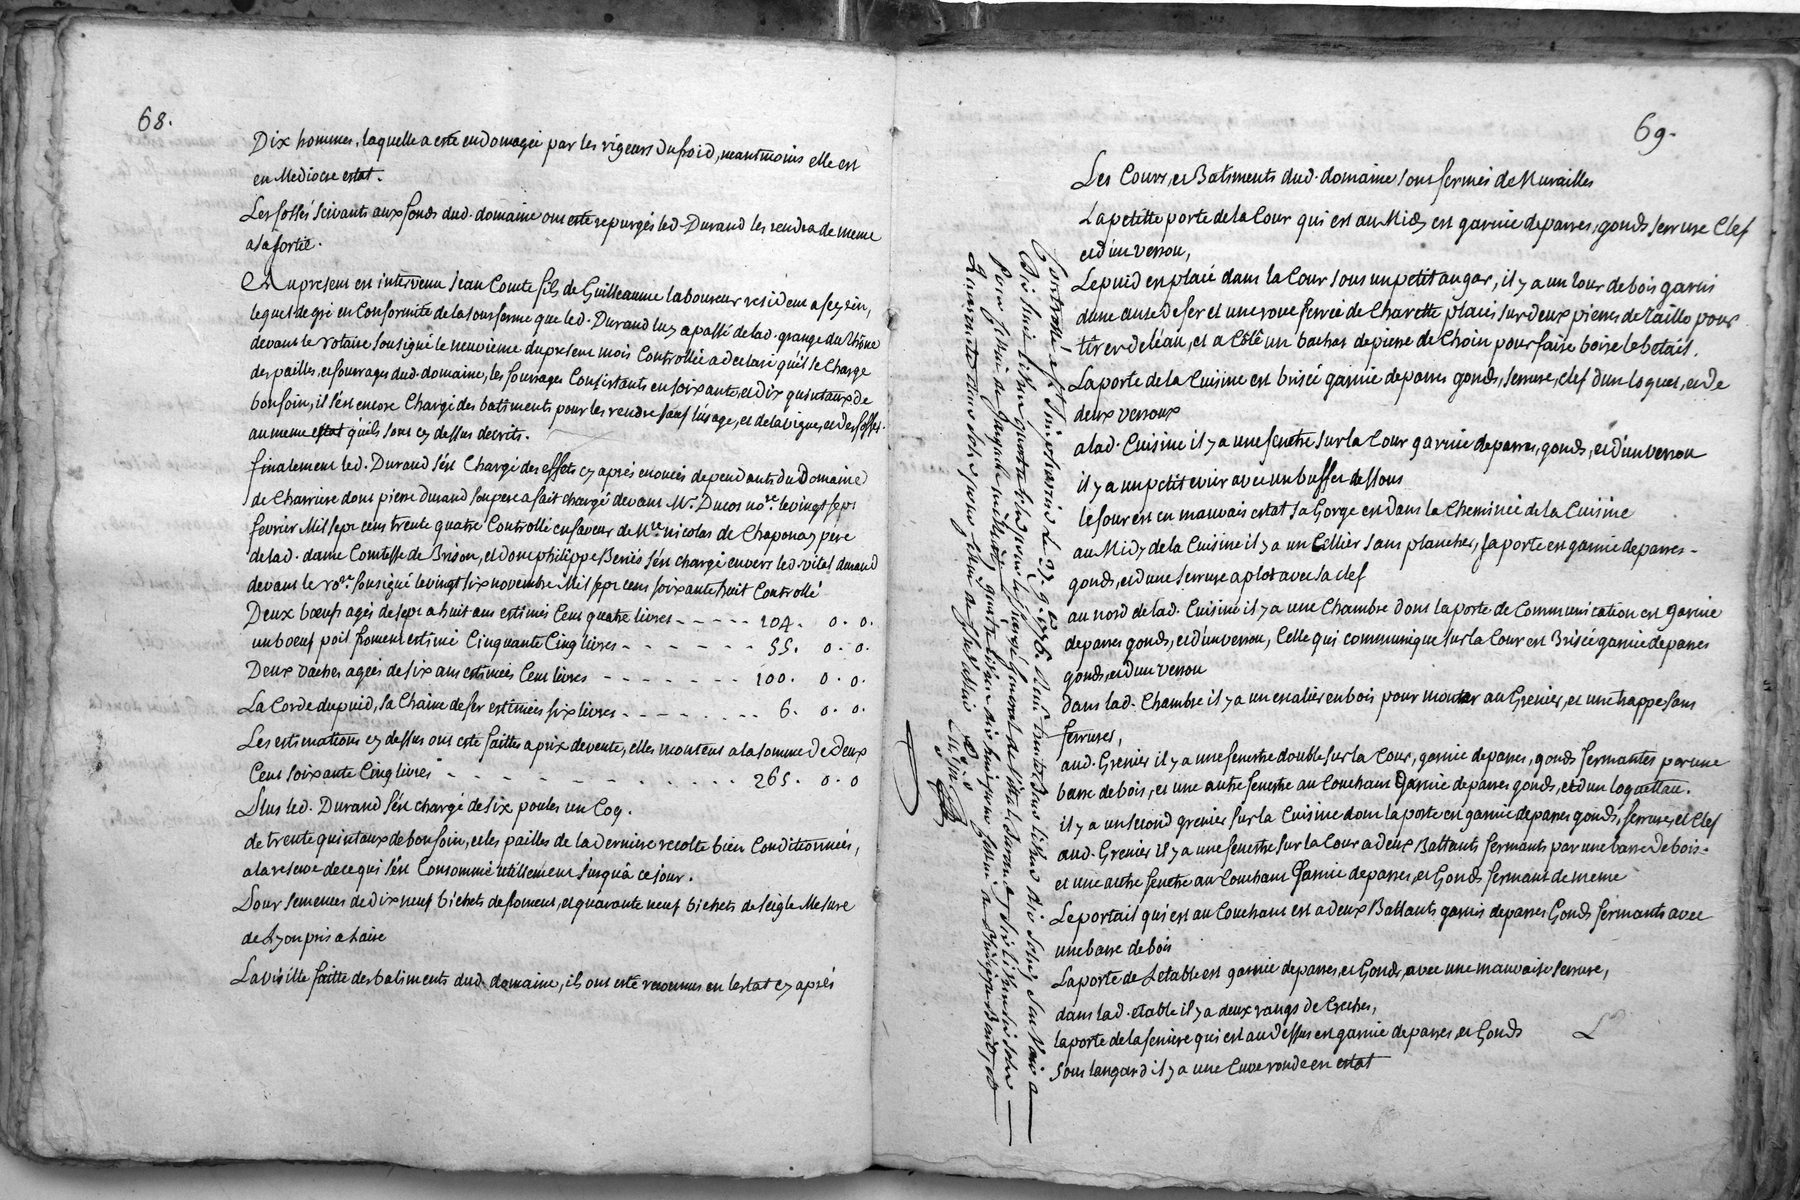 68.
Dix hommes, laquelle a esté endomagée par les rigeurs du froid, neantmoins elle est
en Mediocre estat.
Les fossés scivants aux fonds dud. domaine ont esté repurgés led. Durand les rendra de meme
a sa sortie.
Au present est intervenu Jean Comte fils de Guilleaume laboureur resident a feyzin,
lequel de gré en Conformité de la sousferme que led. Durand luy a passé de lad. grange du Rhône
devant le notaire sousigné le neuvieme du present mois Controllée a declaré qu'il se Charge
des pailles, et fourrages dud. domaine, les fourrages Consistants en soixante, et dix quintaux de
bon foin, il s'est encore Chargé des batiments pour les rendre sauf l'usage, et de la vigne, et des fossés
au meme estat qu'ils sont cy dessus decrits.
finalement led. Durand s'est Chargé des effets cy aprés enoncés dependants du Domaine
de Charriere dont pierre Durand son pere a fait chargé devant Mr. Ducos nore. le vingt sept
fevrier Mil sept cent trente quatre Controllé en faveur de Mre nicolas de Chaponay pere
de lad. dame Comtesse de Brison, et dont philippe Beniés s'est chargé envers led. vital durand
devant le nore sousigné le vingt six novembre Mil sept cent soixante huit Controllé
Deux bœufs agés de sept a huit ans estimés Cent quatre livres - - - - - 104. 0. 0.
un boeuf poil froment estimé Cinquante Cinq livres - - - - - - 55. 0. 0.
Deux vaches agées de six ans estimées Cent livres - - - - - - - 100. 0. 0.
La Corde du puid, sa Chaine de fer estimées six livres - - - - - - - - 6. 0. 0.
Les estimations cy dessus ont esté faittes a prix de vente, elles montent a la somme de deux
Cent soixante Cinq livres - - - - - - - - - - - - - 265. 0. 0
Plus led. Durand s'est chargé de six poules un Coq.
de trente quintaux de bon foin, et les pailles de la derniere recolte bien Conditionnées,
a la reserve de ce qui s'est Consommé utillement jusqu'à ce jour.
Pour semences de dix neuf bichets de froment, et quarante neuf bichets de seigle Mesure
de Lyon pris a l'aire
La visitte faitte des batiments dud. domaine, ils ont esté reconnus en l'estat cy aprés
69.
Les Cours, et Batiments dud. domaine sont fermés de Murailles
La petitte porte de la Cour qui est au Midy est garnie de parres, gonds serrure Clef
et d'un verrou,
Le puid est placé dans la Cour sous un petit angar, il y a un tour de bois garni
d'une anse de fer et une roue ferrée de Charette placés sur deux pierres de Taille pour
tirer de l'eau, et a Côté un bachat de pierre de Choin pour faire boire le betail.
La porte de la Cuisine est brisée garnie de parres gonds, serrure, clef d'un loquet, et de
deux verroux
a lad. Cuisine il y a une fenetre sur la Cour garnie de parres, gonds, et d'un verrou
il y a un petit evier avec un buffet dessous
le four est en mauvais estat sa Gorge est dans la Cheminée de la Cuisine
au Midy de la Cuisine il y a un Cellier sans plancher, sa porte est garnie de parres -
gonds, et d'une serrure a plot avec sa clef
au nord de lad. Cuisine il y a une Chambre dont la porte de Communication est garnie
de parres gonds, et d'un verrou, Celle qui communique sur la Cour est Brisée garnie de parres
gonds, et d'un verrou
dans lad. Chambre il y a un escalier en bois pour monter au Grenier, et une trappe sans
ferrures,
aud. Grenier il y a une fenestre double sur la Cour, garnie de parres, gonds fermantes par une
barre de bois, et une autre fenestre au Couchant Garnie de parres gonds, et d'un loquetteau.
il y a un second grenier sur la Cuisine dont la porte est garnie de parres gonds, serrures, et Clef
aud. Grenier il y a une fenestre sur la Cour a deux Battants fermants par une barre de bois.
et une autre fenetre au Couchant Garnie de parres, et Gonds fermant de meme
Le portail qui est au Couchant est a deux Battants garnis de parres Gonds fermants avec
une barre de bois
La porte de L'etable est garnie de parres, et Gonds, avec une mauvaise serrure,
dans lad. etable il y a deux rangs de Creches,
la porte de la feniere qui est au dessus est garnie de parres, et Gonds
sous langard il y a une Cuve ronde en estat